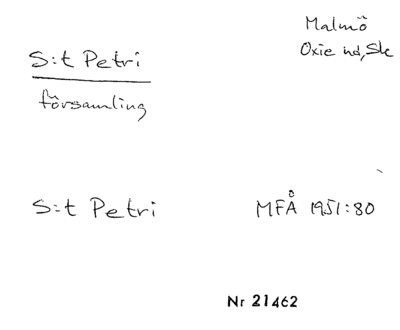 Malmö
S:t Petri
Oxie hd, Sk
församling
S:t Petri
MFÅ 1951:80
Nr 21462